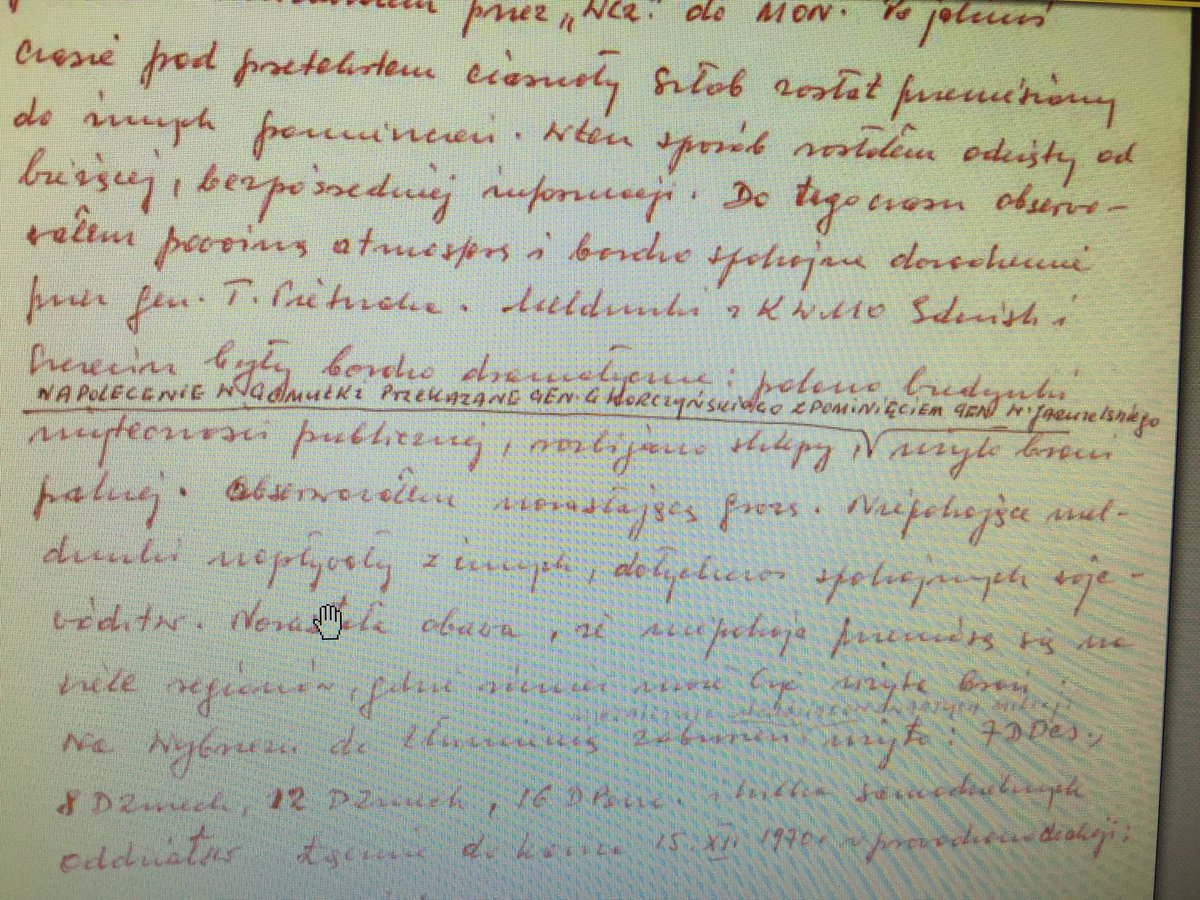 przez „WCz." do MON. Po jakimś
czasie pod pretekstem ciasnoty Sztab został przeniesiony
do innych pomieszczeń. W ten sposób zostałem odcięty od
bieżącej, bezpośredniej informacji. Do tego czasu obserwo-
wałem poważną atmosferę i bardzo spokojne dowodzenie
przez gen. T. Pietrzaka. Meldunki z KWMO Gdańsk i
Szczecin były bardzo dramatyczne: palono budynki
NA POLECENIE W. GOMUŁKI PRZEKAZANE GEN. G. KORCZYŃSKIEGO Z POMINIĘCIEM GEN. W. Jaruzelskiego
użyteczności publicznej, rozbijano sklepy, √ użyto broni
palnej. Obserwowałem narastającą grozę. Niepokojące mel-
dunki napływały z innych, dotychczas spokojnych woje-
wództw. Narastała obawa, że niepokoje przeniosą się na
wiele regionów, gdzie również może być użyta broń.
Na Wybrzeżu do tłumienia zaburzeń użyto: 7 DDes.,
8 DZmech, 12 DZmech, 16 DPanc. i kilka samodzielnych
oddziałów. Łącznie do końca 15.XII.1970r. wprowadzono do akcji: